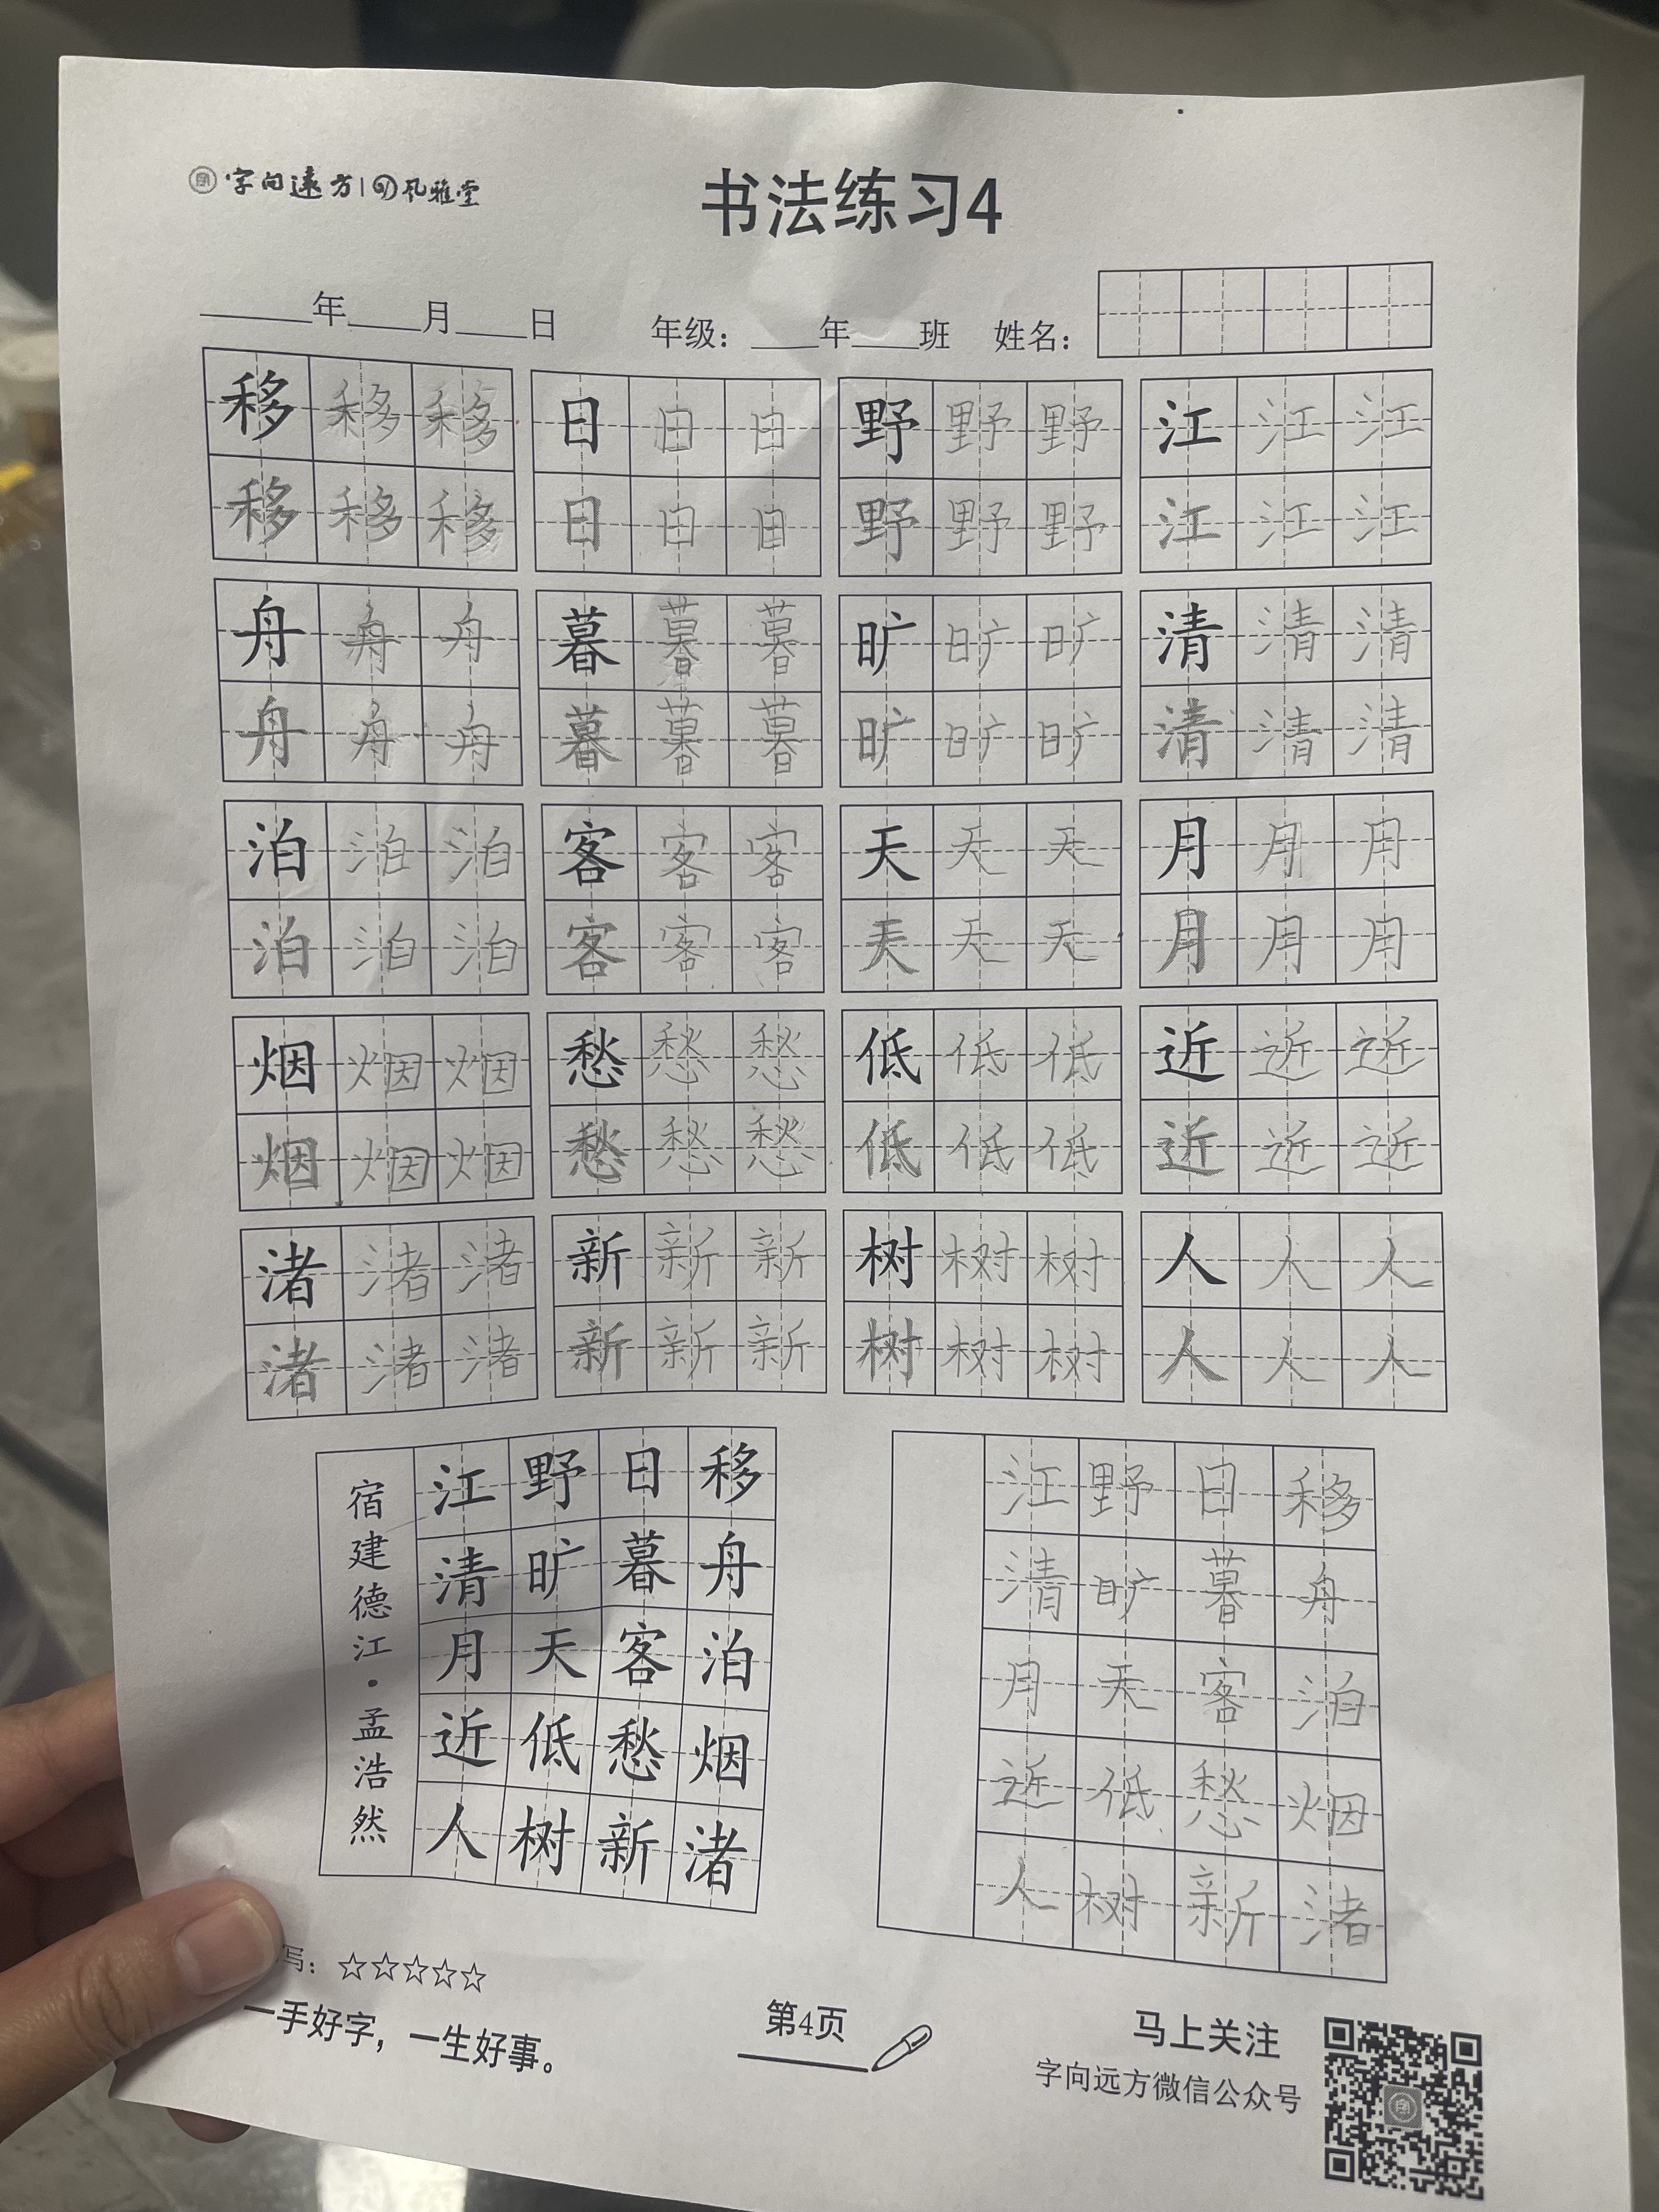 字向远方 风雅堂
书法练习4
____年____月____日 年级：____年____班 姓名：
移移移 日日日 野野野 江江江
移移移 日日日 野野野 江江江
舟舟舟 暮暮暮 旷旷旷 清清清
舟舟舟 暮暮暮 旷旷旷 清清清
泊泊泊 客客客 天天天 月月月
泊泊泊 客客客 天天天 月月月
烟烟烟 愁愁愁 低低低 近近近
烟烟烟 愁愁愁 低低低 近近近
渚渚渚 新新新 树树树 人人人
渚渚渚 新新新 树树树 人人人
移舟泊烟渚
日暮客愁新
野旷天低树
江清月近人
宿建德江·孟浩然
移舟泊烟渚
日暮客愁新
野旷天低树
江清月近人
写：☆☆☆☆☆
一手好字，一生好事。
第4页
马上关注
字向远方微信公众号